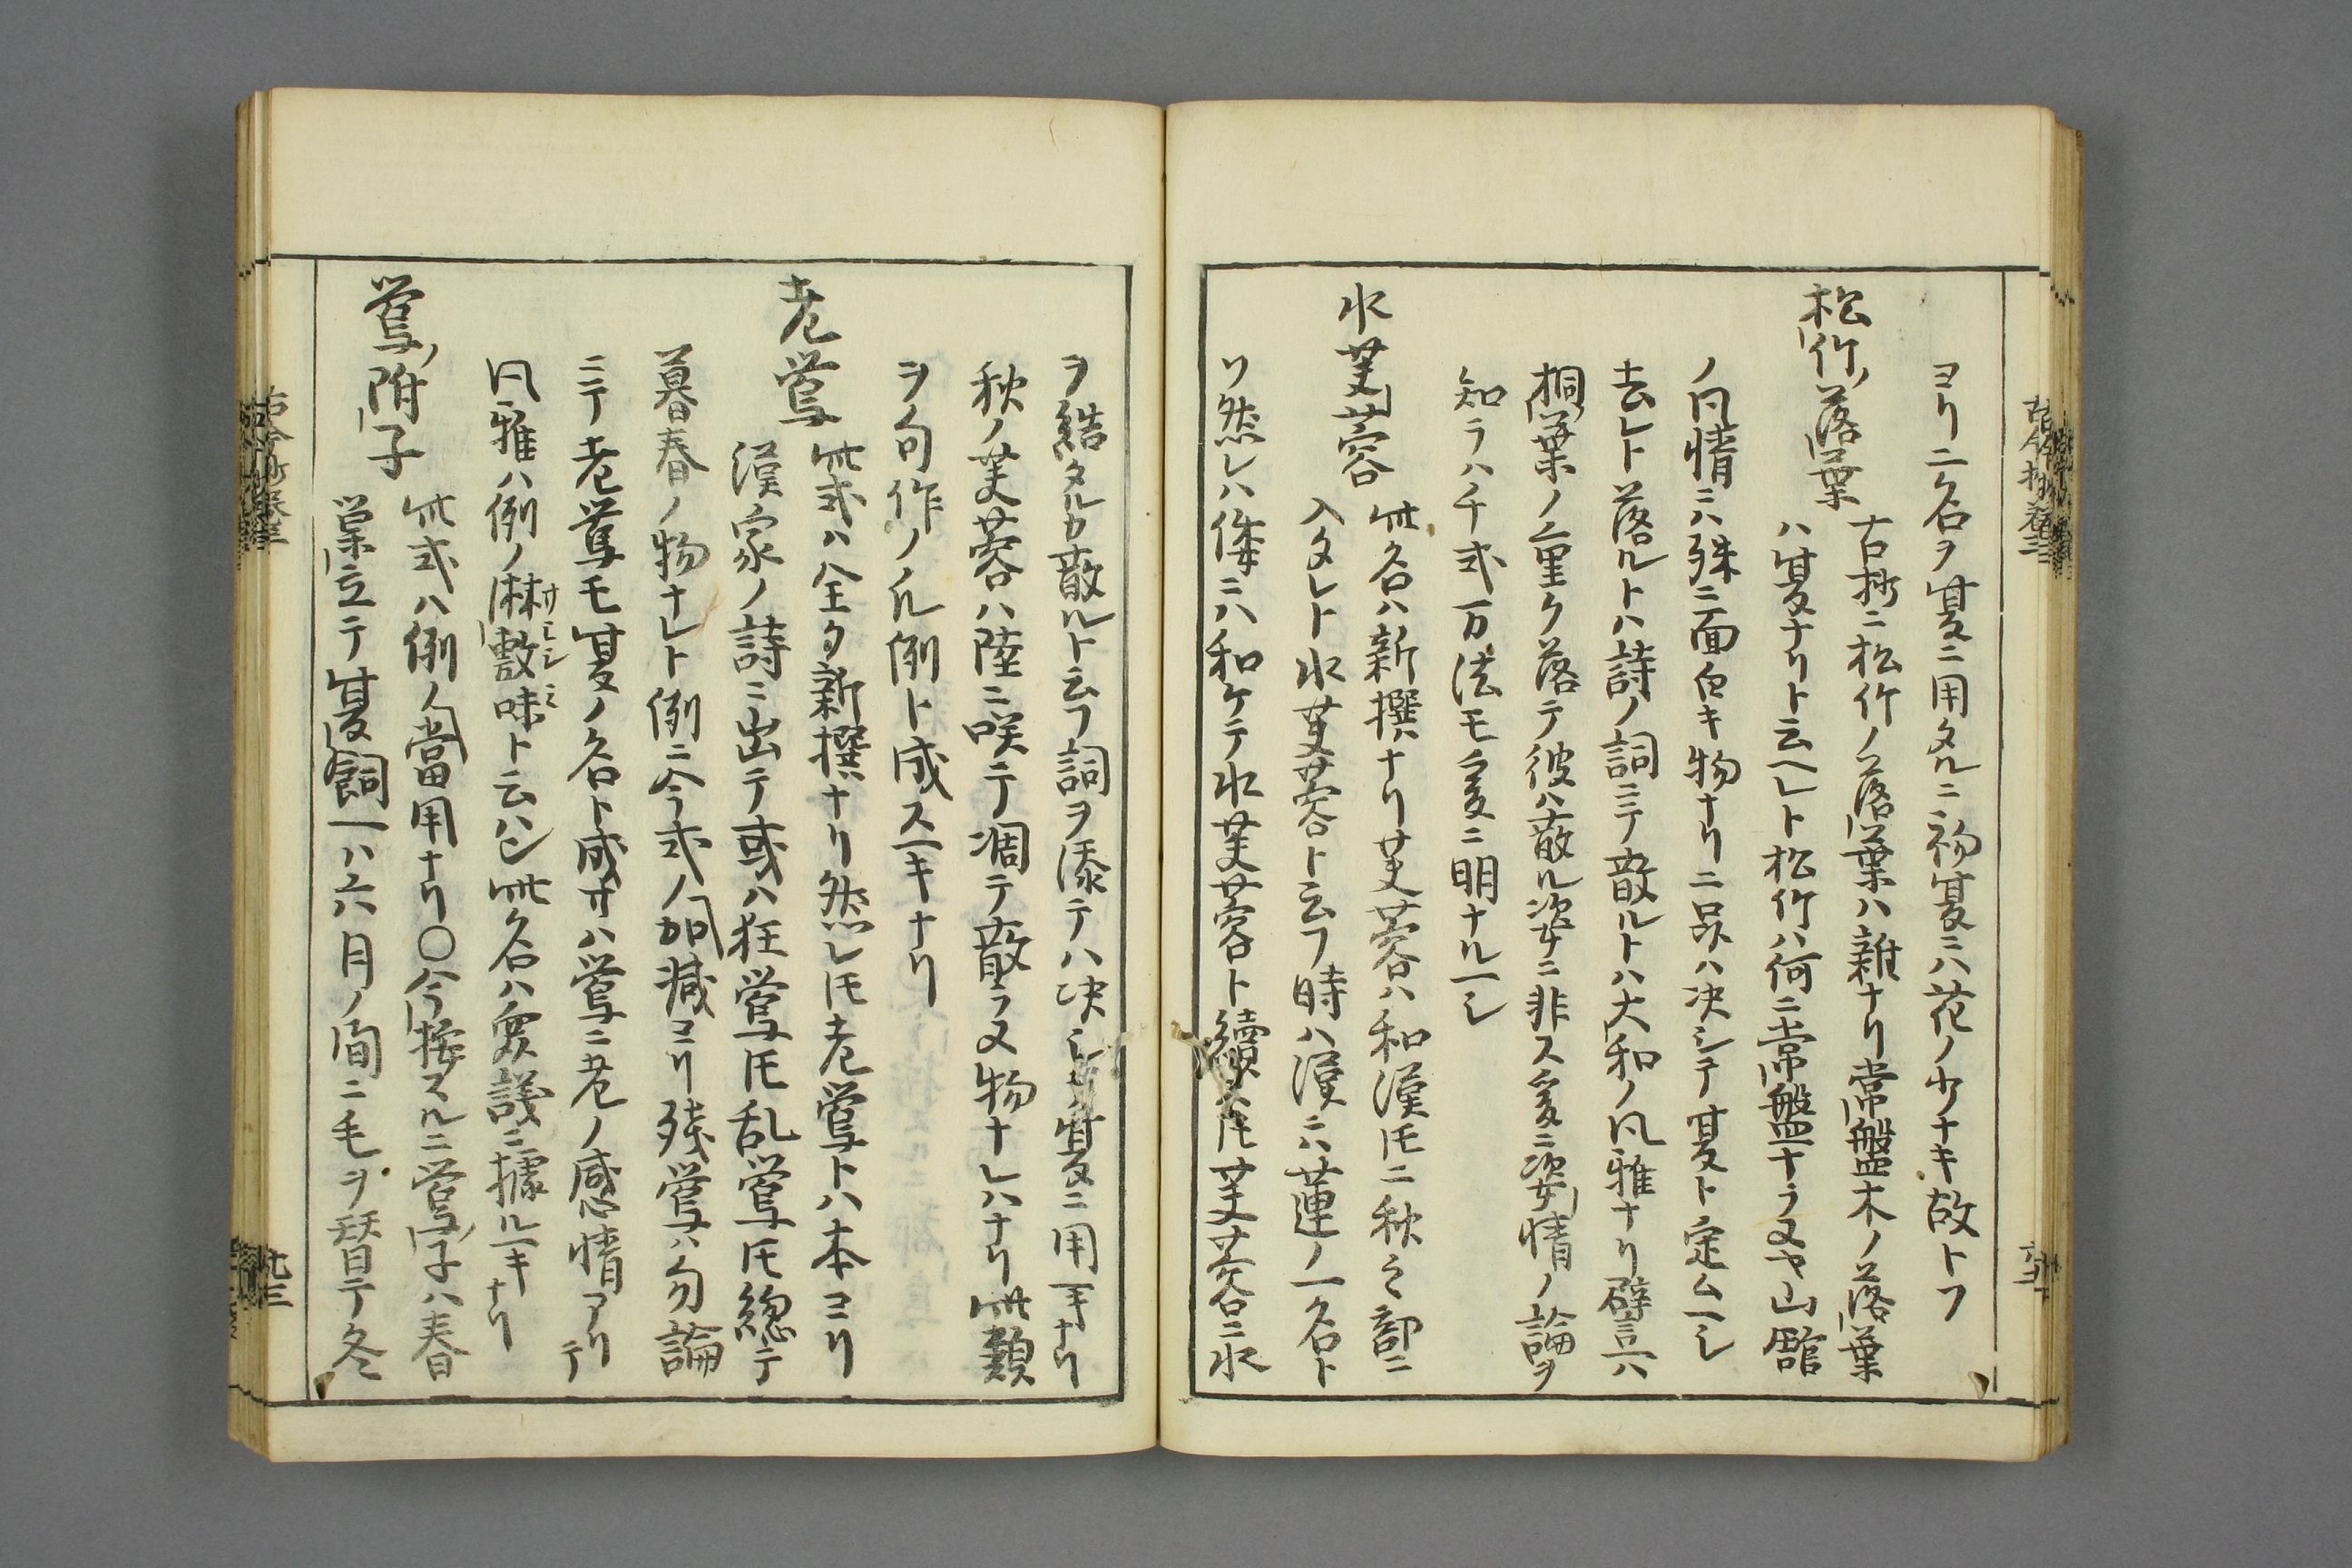 ヨリ二名ヲ夏ニ用タルニ初夏ニハ花ノ少ナキ故トソ
松竹ノ落葉
古抄ニ松竹ノ落葉ハ雑ナリ常盤木ノ落葉
ハ夏ナリト云ヘレト松竹ハ何ニ常盤ナラヌヤ山館
ノ風情ニハ殊ニ面白キ物ナリ二品ハ决シテ夏ト定ムヘシ
去レト落ルトハ詩ノ詞ニテ散ルトハ大和ノ風雅ナリ譬ハ
桐葉ノ重ク落テ彼ハ散ル姿ニ非ス爰ニ姿情ノ論ヲ
知ラハ千式万法モ爰ニ明ナルヘシ
水芙蓉
此名ハ新撰ナリ芙蓉ハ和漢𪜈ニ秋之部ニ
入タレト水芙蓉ト云フ時ハ漢ニハ蓮ノ一名ト
ソ然レハ俳ニハ和ケテ水芙蓉ト續𪜈芙蓉ニ水
ヲ結タルカ散ルト云フ詞ヲ添テハ决シテ夏ニ用ヘキナリ
秋ノ芙蓉ハ陸ニ咲テ凋テ散ラヌ物ナレハナリ此類
ヲ句作ノル例ト成スヘキナリ
老鶯
此式ハ全ク新撰ナリ然レ𪜈老鶯トハ本ヨリ
漢家ノ詩ニ出テ或ハ狂鶯𪜈乱鶯𪜈総テ
暮春ノ物ナレト例ニ今式ノ加減ヨリ残鶯ハ勿論
ニテ老鶯モ夏ノ名ト成サハ鶯ニ老ノ感情アリテ
風雅ハ例ノ淋敷味ト云ハン此名ハ衆議ニ據ルヘキナリ
鶯ノ附子
此式ハ例ノ當用ナリ○今按スルニ鶯ノ子ハ春
巣立テ夏飼ヘハ六月ノ間ニ毛ヲ替テ冬